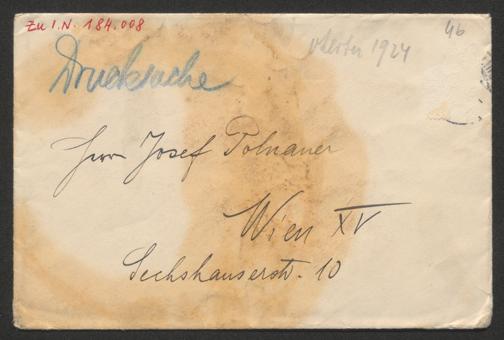 Zu I.N. 184.008
46
1924
Drucksache
Herrn Josef Polnauer
Wien XV
Sechshauserstr. 10